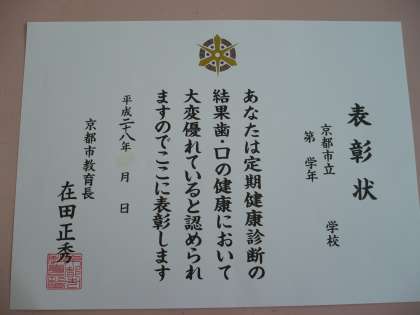 表彰状
京都市立
学校
第 学年
あなたは定期健康診断の
結果歯・口の健康において
大変優れていると認められ
ますのでここに表彰します
平成二十八年 月 日
京都市教育長
在田正秀